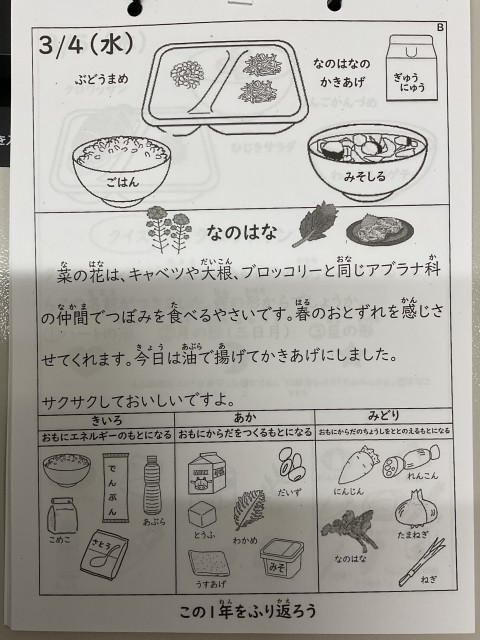 3/4(水)
B
ぶどうまめ
なのはなの
かきあげ
ぎゅう
にゅう
ごはん
みそしる
なのはな
菜の花は、キャベツや大根、ブロッコリーと同じアブラナ科
の仲間でつぼみを食べるやさいです。春のおとずれを感じさ
せてくれます。今日は油で揚げてかきあげにしました。
サクサクしておいしいですよ。
きいろ
おもにエネルギーのもとになる
でんぷん
あぶら
こめこ
さとう
あか
おもにからだをつくるもとになる
だいず
とうふ
わかめ
うすあげ
みそ
みどり
おもにからだのちょうしをととのえるもとになる
にんじん
れんこん
なのはな
たまねぎ
ねぎ
この1年をふり返ろう